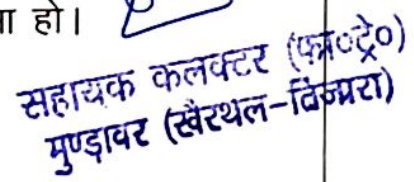 ा हो।
सहायक कलक्टर (फा०ट्रे०)
मुण्डावर (खैरथल-तिजारा)